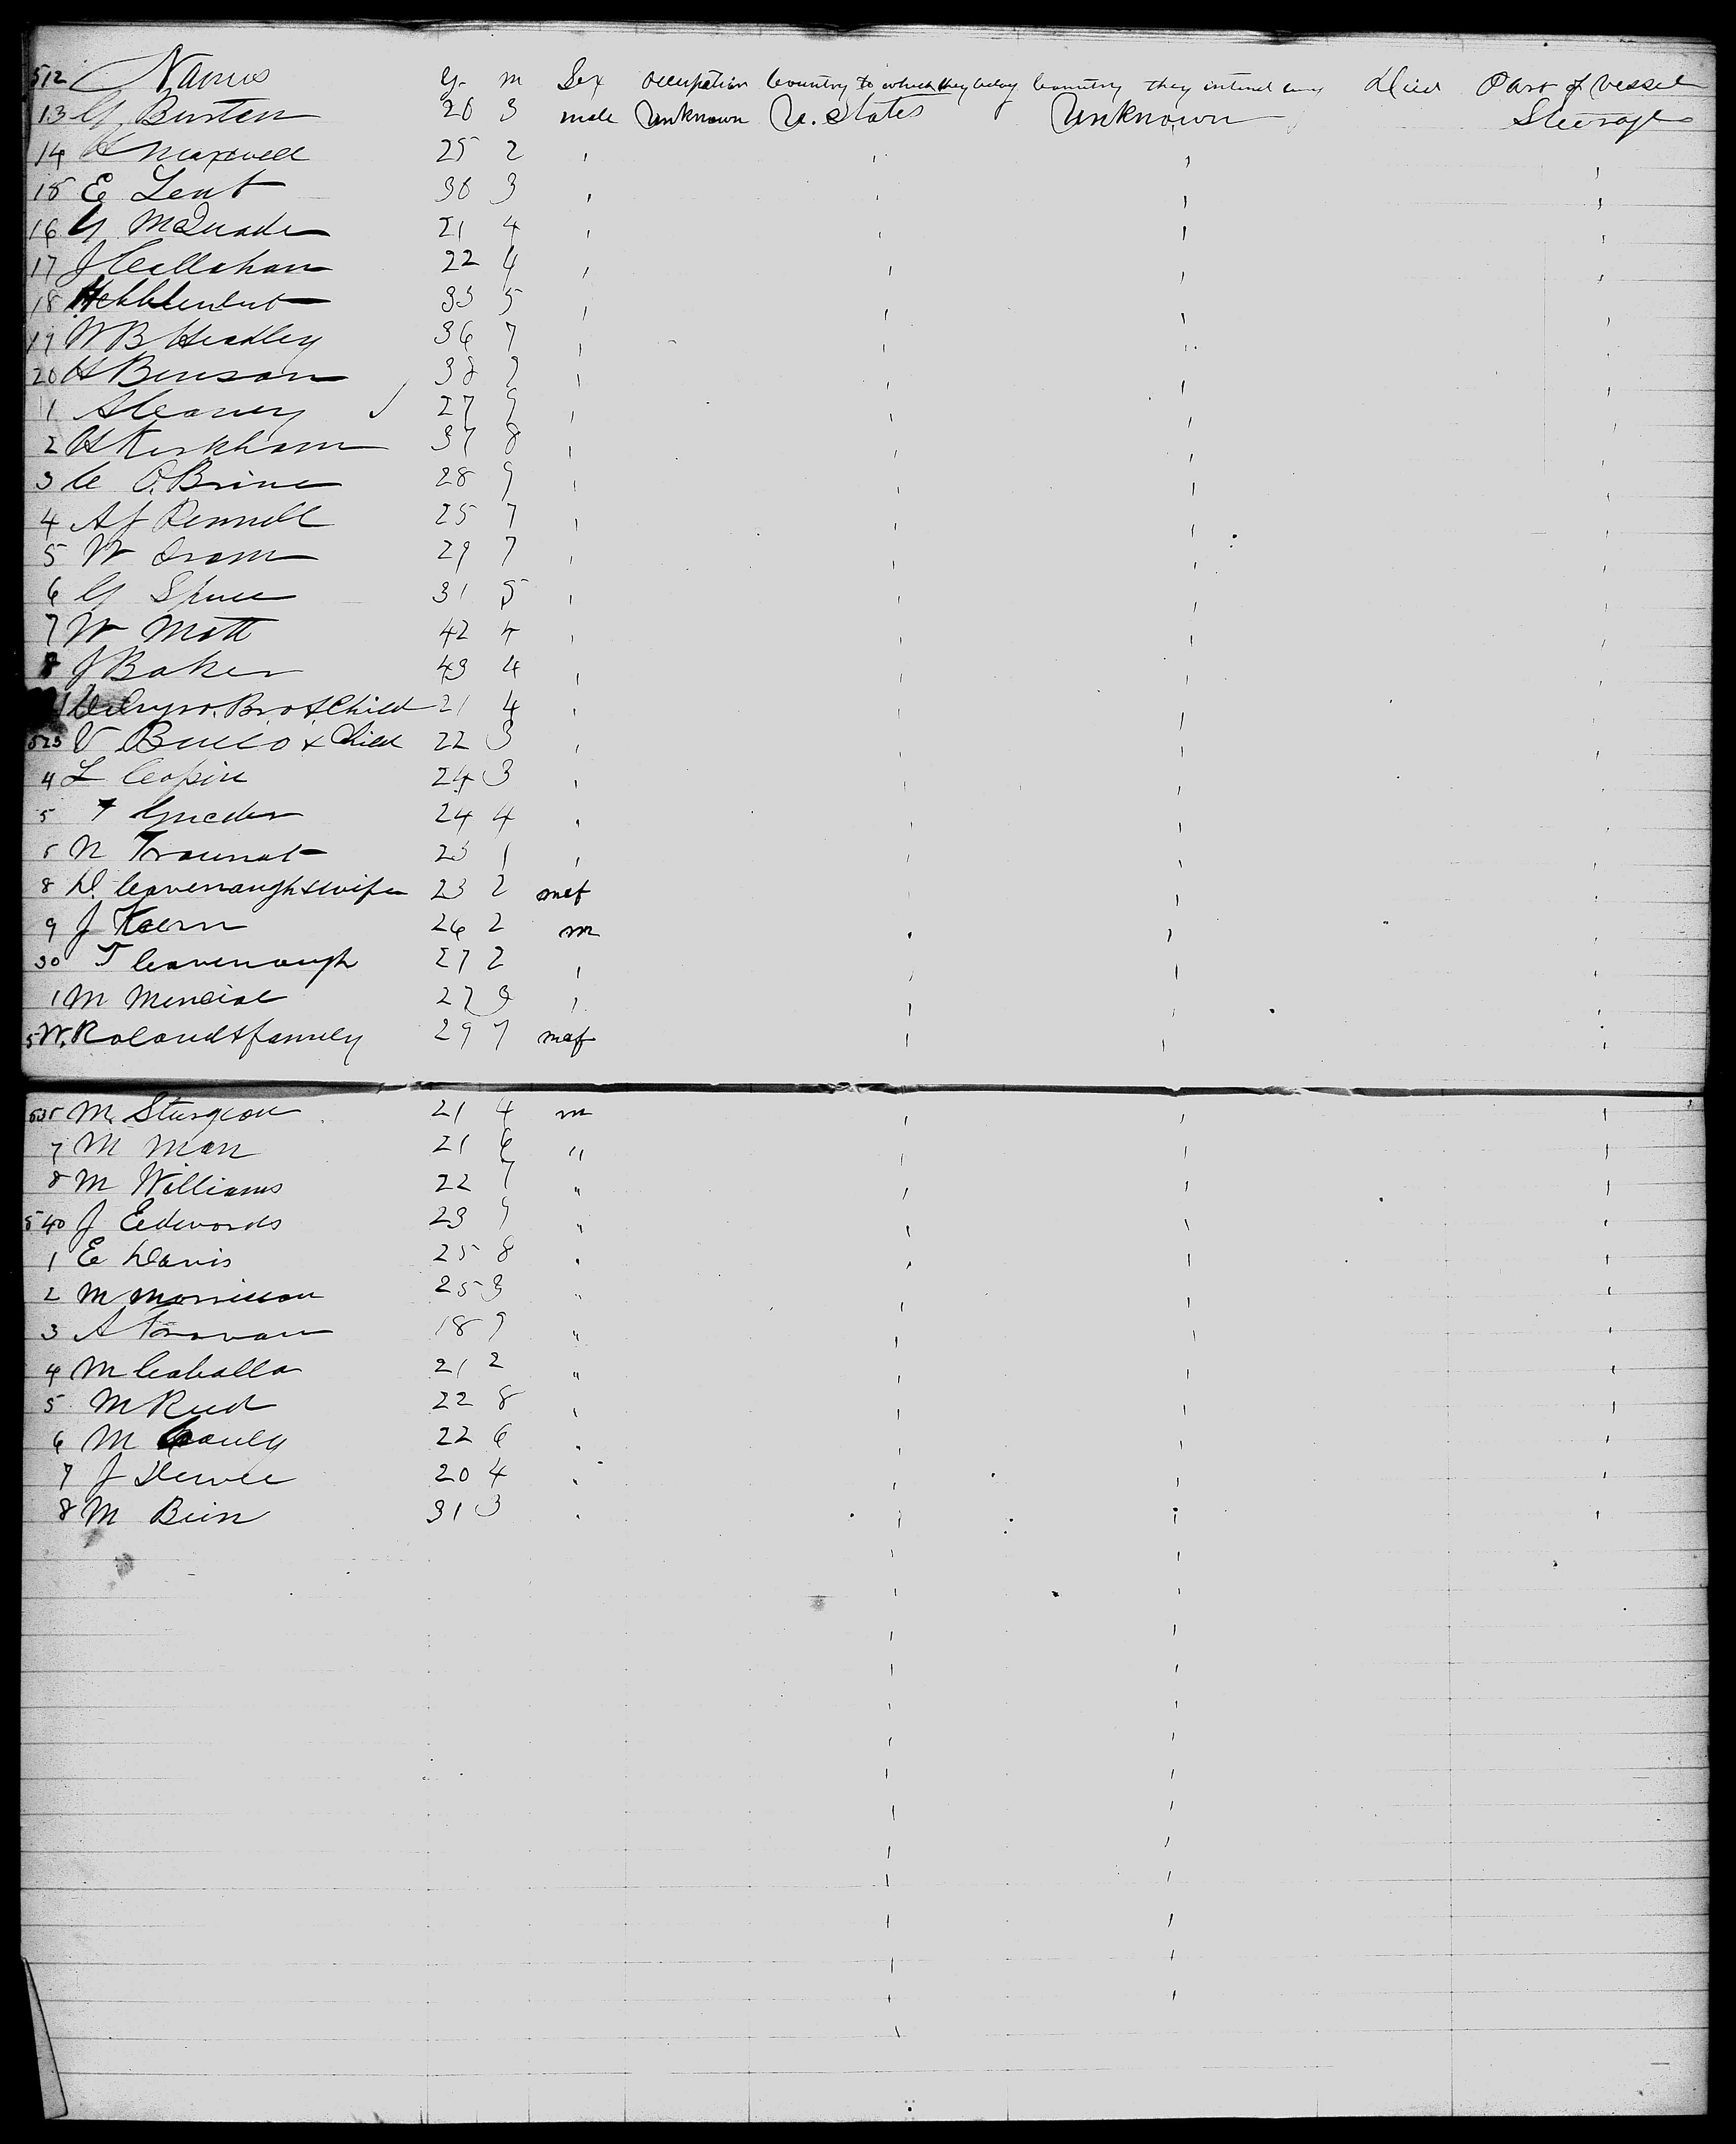 512 Names y. m Sex occupation Country to which they belong Country they intend Died Part of vessel
13 G. Burton 20 3 male Unknown U. States Unknown Steerage
14 H Maxwell 25 2 ,
15 E Lent 30 3 ,
16 G McQuade 21 4 ,
17 J Callahan 22 4 ,
18 33 5 ,
19 W B Headley 36 7 ,
20 H Benson 38 7 ,
1 A Cearney 27 9 ,
2 H Kirkham 37 8 ,
3 C O,Brine 28 9 ,
4 A J Rennell 25 7 ,
5 W Oram 29 7 ,
6 G Spuce 31 5 ,
7 W Mott 42 4 ,
8 J Baker 43 4 ,
Bro & Child 21 4 ,
523 V Buleo & Child 22 3 ,
4 L Copin 24 3 ,
5 24 4 ,
6 N Traunat 23 1 ,
8 D. Cavenaugh & wife 23 2 m&f
9 J Kern 26 2 m
30 T Cavenaugh 27 2 ,
1 M Mencial 27 9 ,
5 W. Roland & family 29 7 m&f
535 M. Sturgeon 21 4 m
7 M Man 21 6 "
8 M Williams 22 7 "
540 J Eedwards 23 9 "
1 E Davis 25 8 "
2 M Morrison 25 3 "
3 A 18 9 "
4 M Caballa 21 2 "
5 M Reed 22 8 ,
6 M Cauly 22 6 ,
7 J Dewee 20 4 ,
8 M Bien 31 3 ,